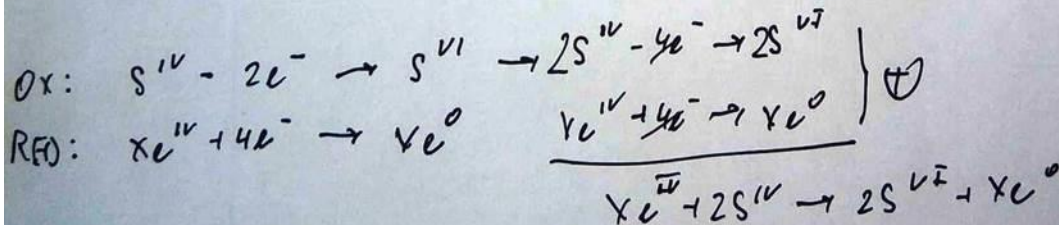 OX: S^IV - 2e^- → S^VI → 2S^IV - 4e^- → 2S^VI
RED: Xe^IV + 4e^- → Xe^0 Xe^IV + 4e^- → Xe^0 ⊕
Xe^IV + 2S^IV → 2S^VI + Xe^0